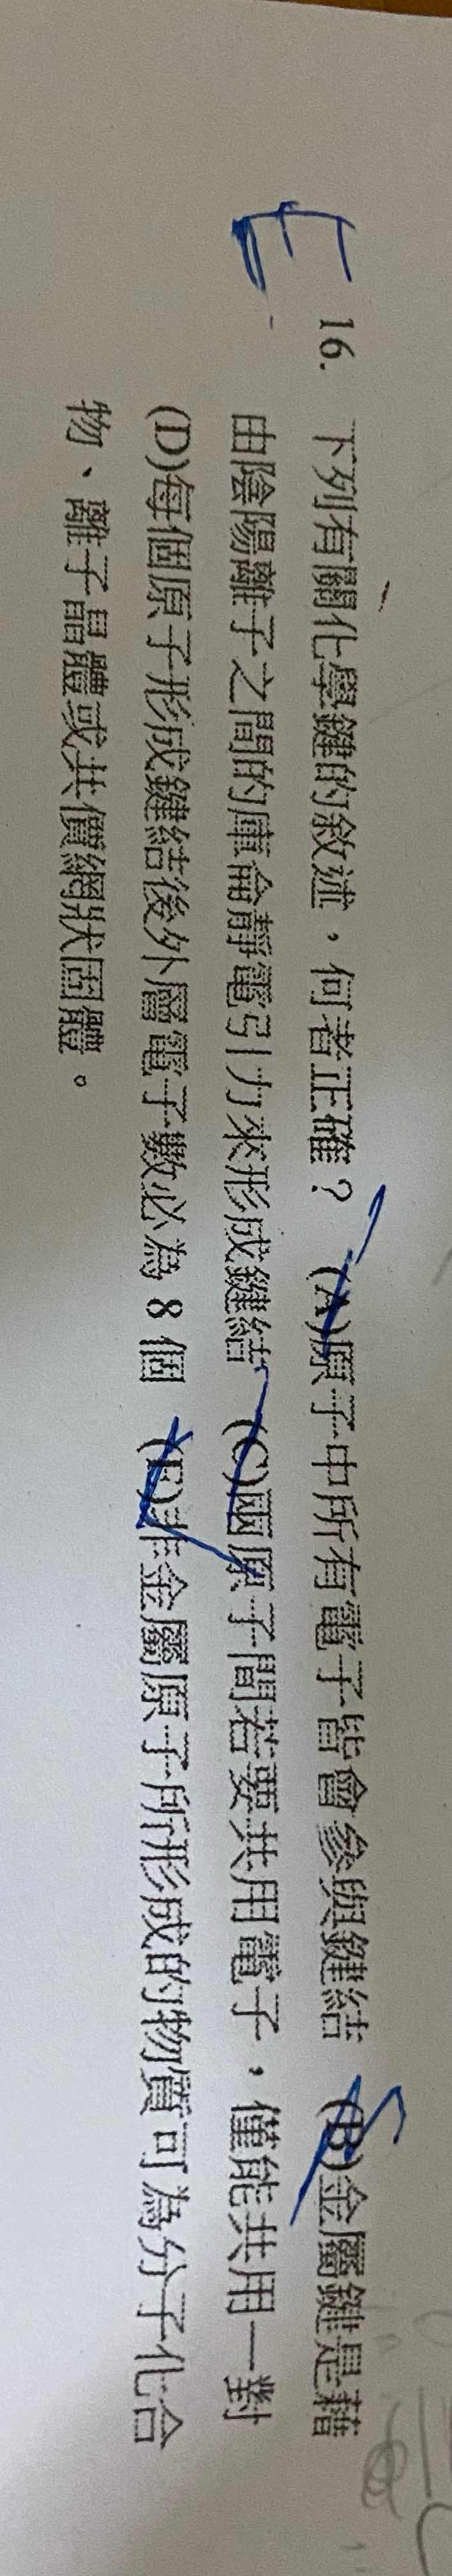 E 16. 下列有關化學鍵的敘述，何者正確？ (A)原子中所有電子皆會參與鍵結 (B)金屬鍵是藉
由陰陽離子之間的庫侖靜電引力來形成鍵結 (C)兩原子間若要共用電子，僅能共用一對
(D)每個原子形成鍵結後外層電子數必為 8 個 (E)非金屬原子所形成的物質可為分子化合
物、離子晶體或共價網狀固體。